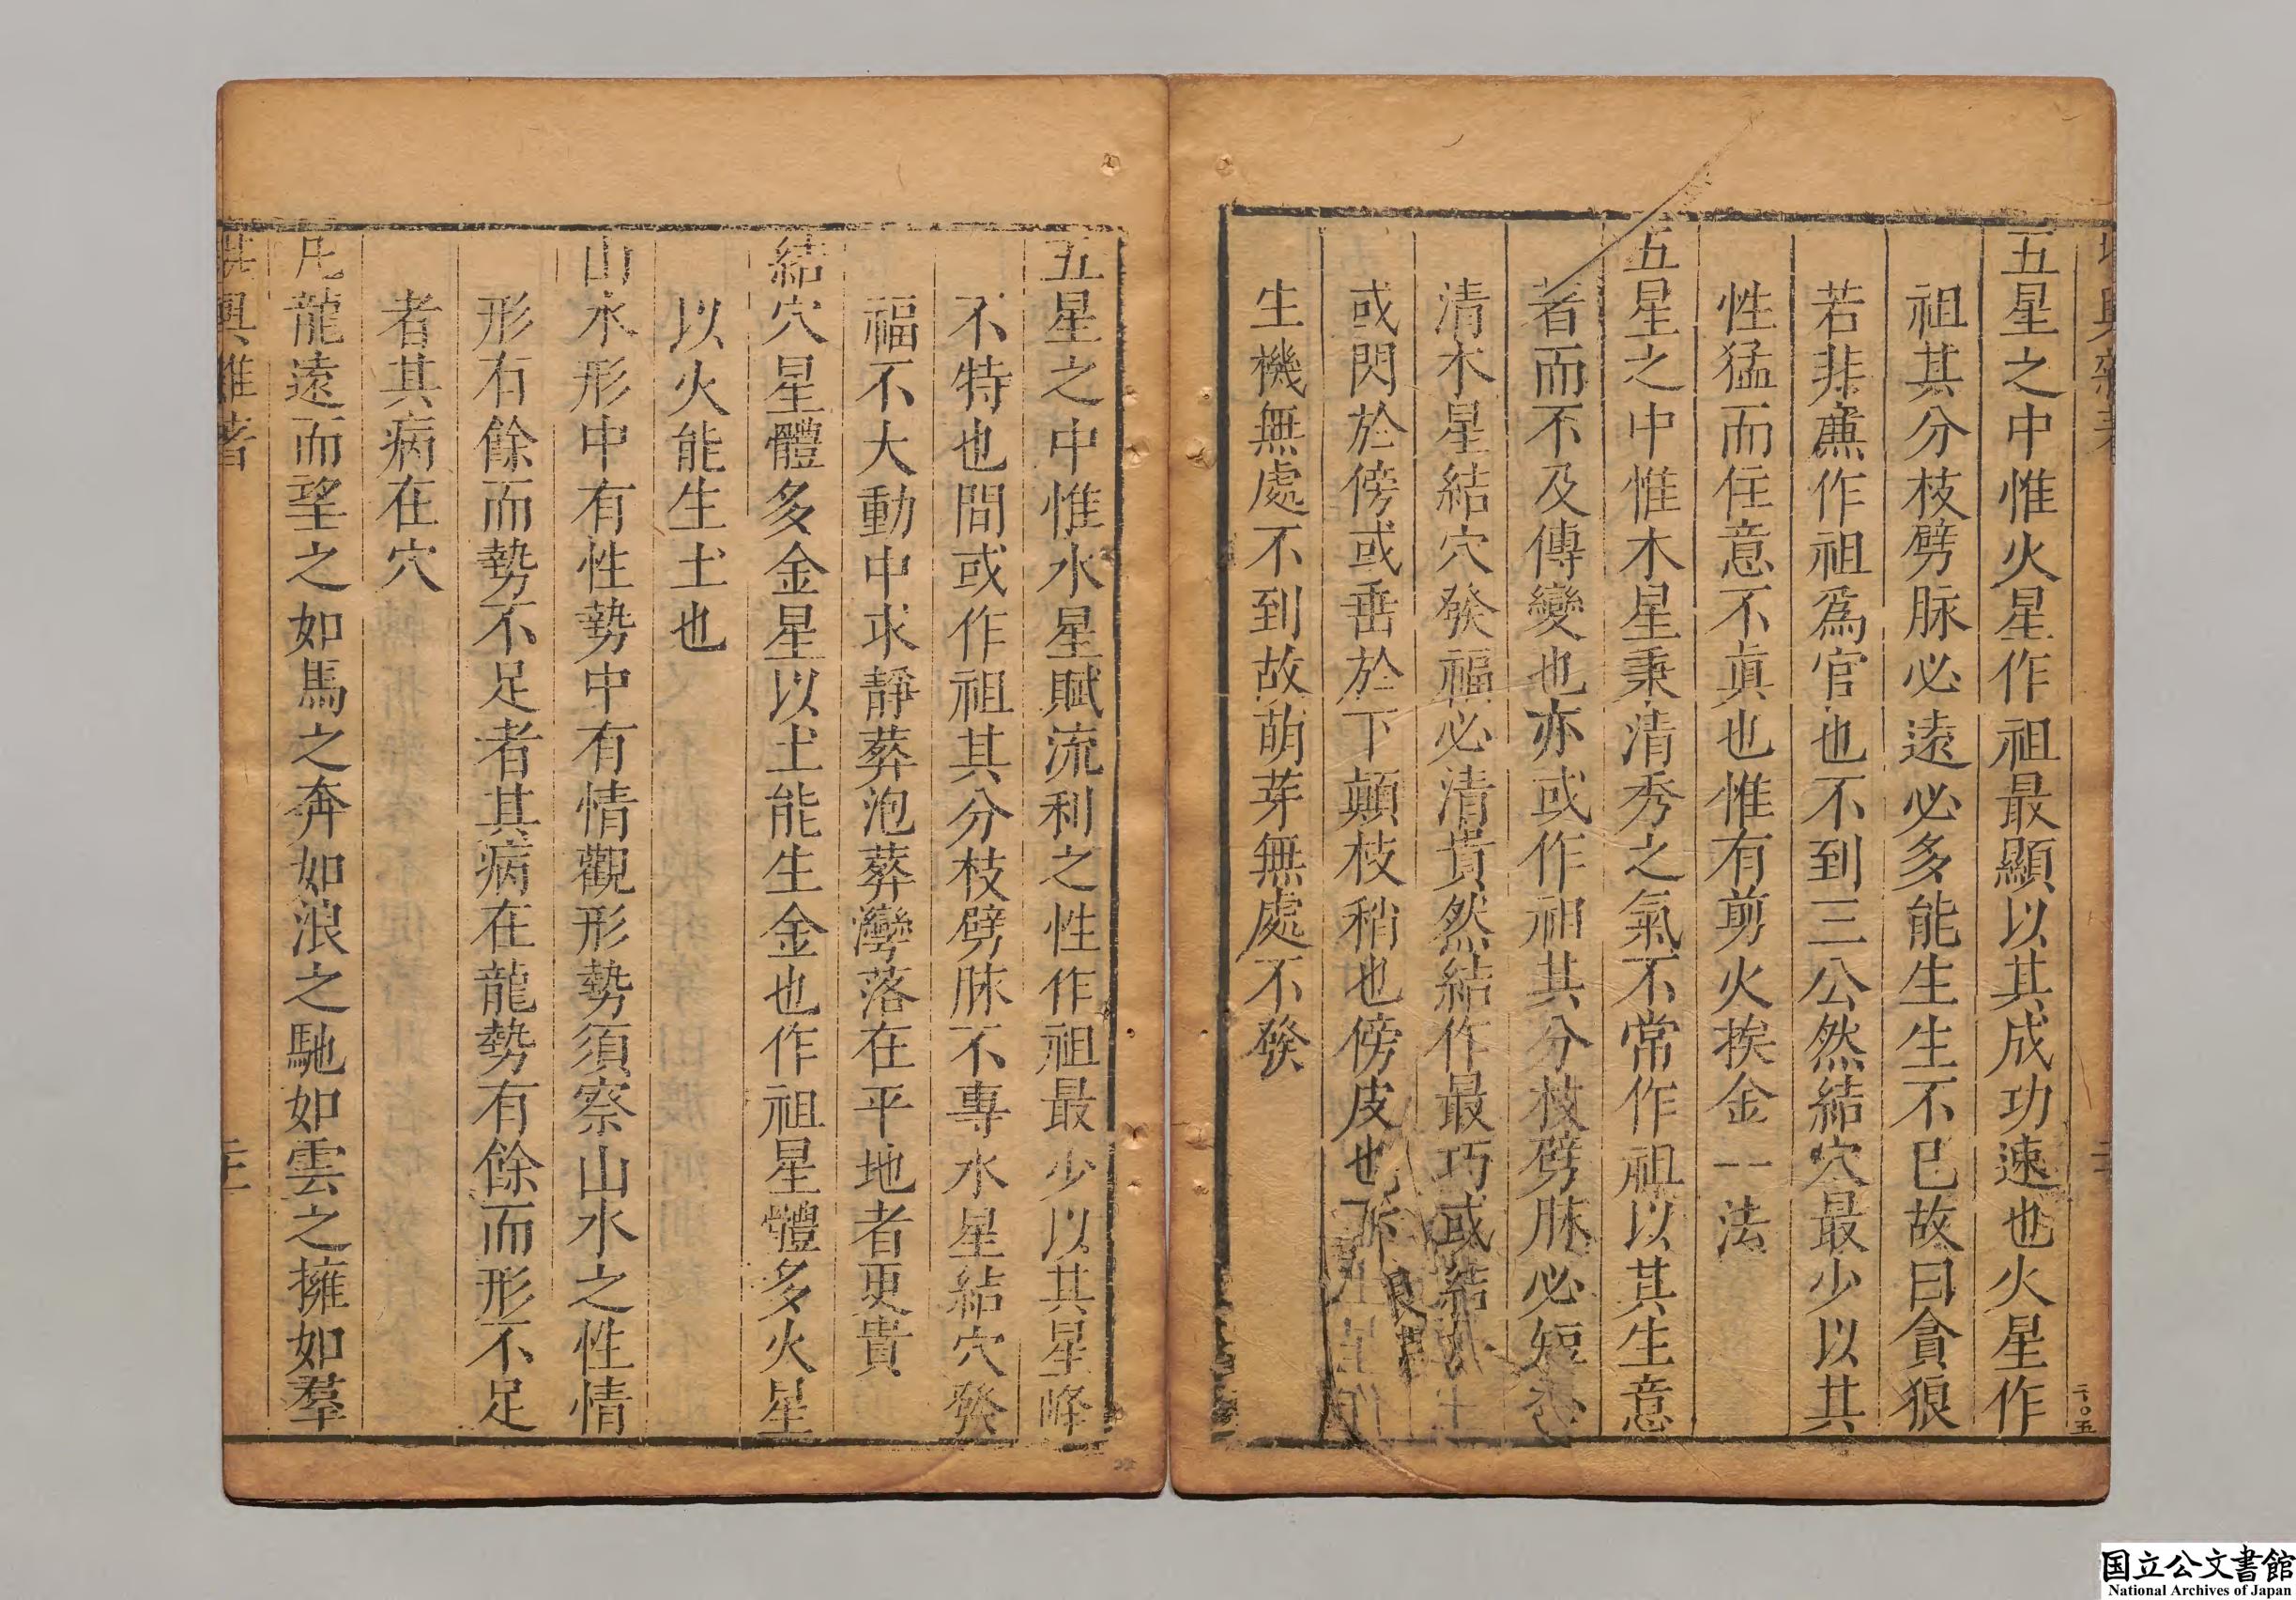 五星之中惟火星作祖最顯以其成功速也火星作
祖其分枝劈脉必遠必多能生生不已故曰貪狼
若非廉作祖爲官也不到三公然結穴最少以其
性猛而任意不眞也惟有剪火挨金一法
五星之中惟木星秉清秀之氣不常作祖以其生意
者而不及傳變也亦或作祖其分枝劈脉必短
清木星結穴發福必清貴然結作最巧或結
或閃於傍或垂於下顛枝稍也傍皮也
生機無處不到故萌芽無處不發
五星之中惟水星賦流利之性作祖最少以其星峰
不特也間或作祖其分枝劈脉不專水星結穴發
福不大動中求靜葬泡葬灣落在平地者更貴
結穴星體多金星以土能生金也作祖星體多火星
以火能生土也
山水形中有性勢中有情觀形勢須察山水之性情
形有餘而勢不足者其病在龍勢有餘而形不足
者其病在穴
凡龍遠而望之如馬之奔如浪之馳如雲之擁如羣
国立公文書館
National Archives of Japan